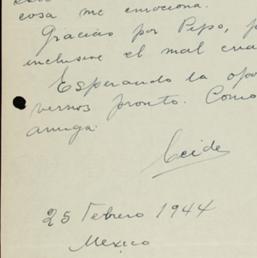 cosa me emociona.
Gracias por Pepo, p
inclusive el mal cria
Esperando la opo
vernos pronto. Como
amiga
25 Febrero 1944
Mexico